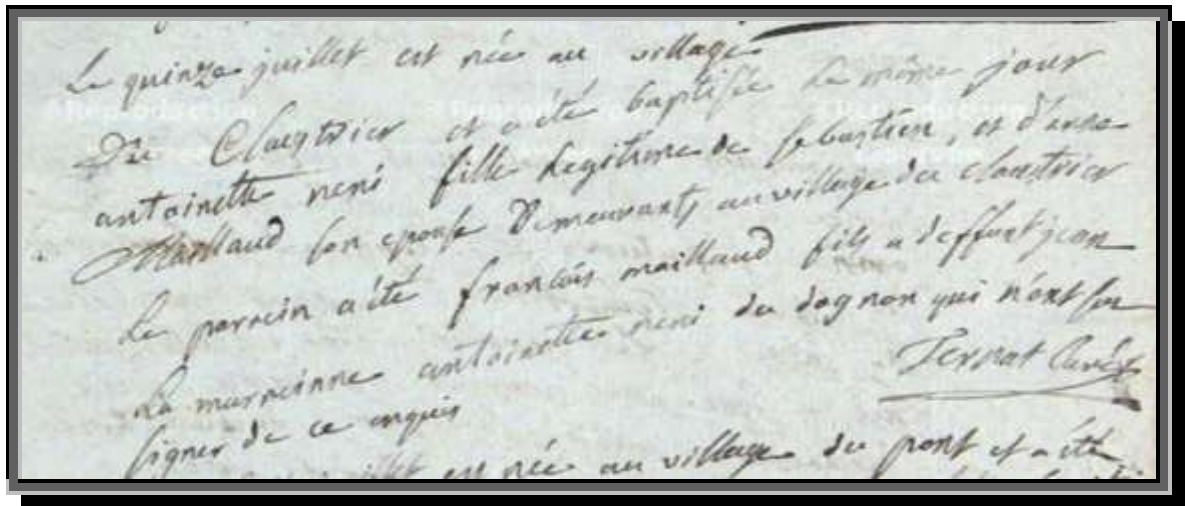 Le quinze juillet est née au village
Du Claustrier et a été baptisée Le même jour
antoinette neni fille Legitime de sebastien, et d'anne
Maillaud son epouse Demeurants au village du claustrier
Le parrein a été francois maillaud fils a deffunt jean
La marreinne antoinette neni du dognon qui n'ont su
signer de ce enquis
Ternat Curé
est née au village du pont et a été